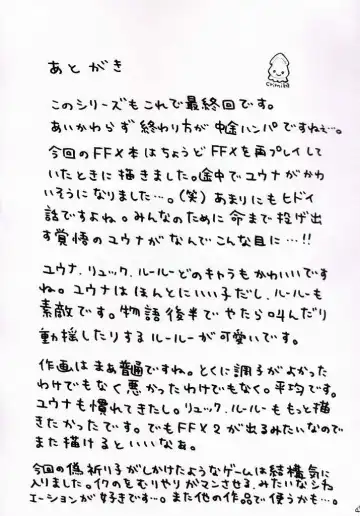 あとがき
chimiko
このシリーズもこれで最終回です。
あいかわらず終わり方が中途ハンパですねぇ…。
今回のFFX本はちょうどFFXを再プレイして
いたときに描きました。途中でユウナがかわ
いそうになりました…。(笑)あまりにもヒドイ
話ですよね。みんなのために命まで投げ出
す覚悟のユウナがなんでこんな目に…!!
ユウナ、リュック、ルールーどのキャラもかわいいです
ね。ユウナはほんとにいい子だし、ルールーも
素敵です。物語後半でやたら叫んだり
動揺したりするルールーが可愛いです。
作画はまぁ普通ですね。とくに調子がよかった
わけでもなく悪かったわけでもなく。平均です。
ユウナも慣れてきたし。リュック、ルールーももっと描
きたかったです。でもFFX2が出るみたいなので
また描けるといいなぁ。
今回の偽祈り子がしかけたようなゲームは結構気に
入りました。イクのをむりやりガマンさせる、みたいなシチュ
エーションが好きです…。また他の作品で使うかも…。